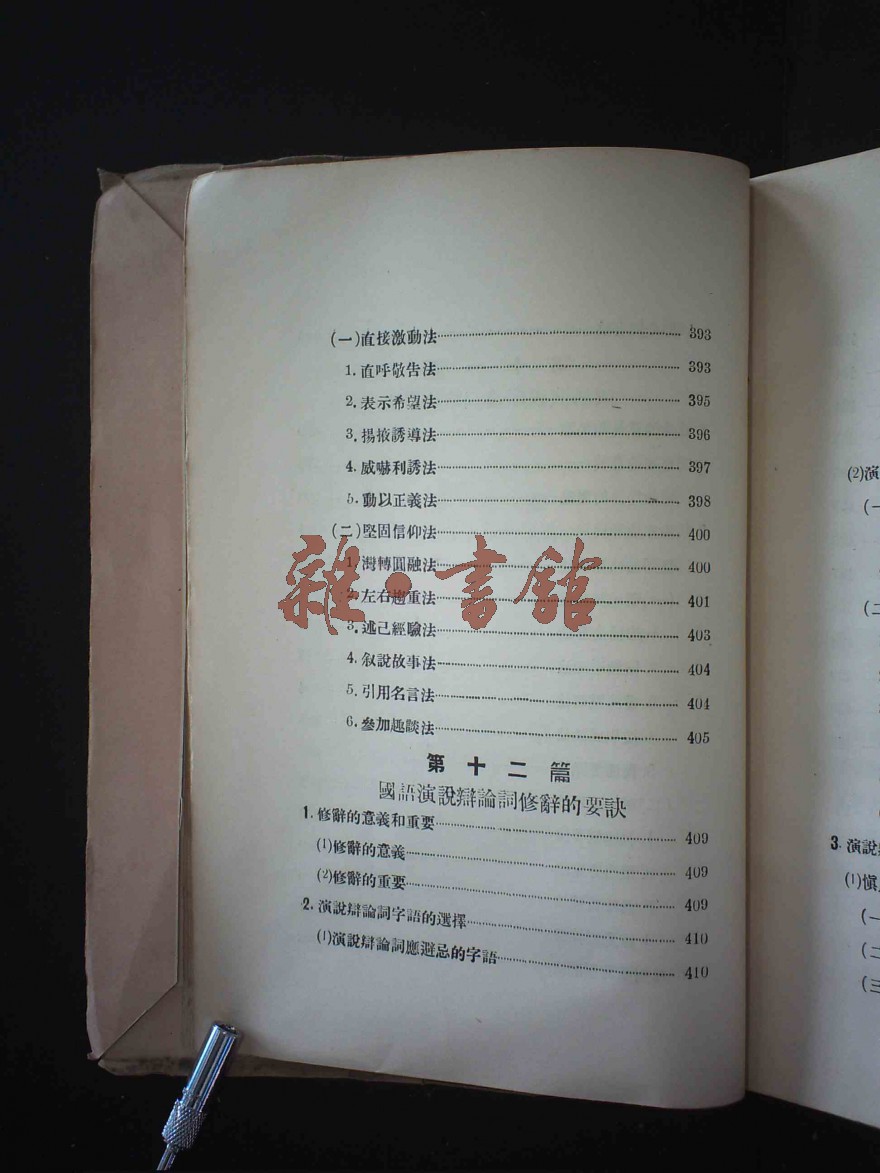 (一)直接激動法 393
1.直呼敬告法 393
2.表示希望法 395
3.揚掖誘導法 396
4.威嚇利誘法 397
5.動以正義法 398
(二)堅固信仰法 400
1.灣轉圓融法 400
2.左右趨重法 401
3.述己經驗法 403
4.敘說故事法 404
5.引用名言法 404
6.參加趣談法 405
第十二篇
國語演說辯論詞修辭的要訣
1.修辭的意義和重要 409
(1)修辭的意義 409
(2)修辭的重要 409
2.演說辯論詞字語的選擇 410
(1)演說辯論詞應避忌的字語 410
雜·書館
(2)演
(一
(二
3.演說
(1)慎
(一
(二
(三